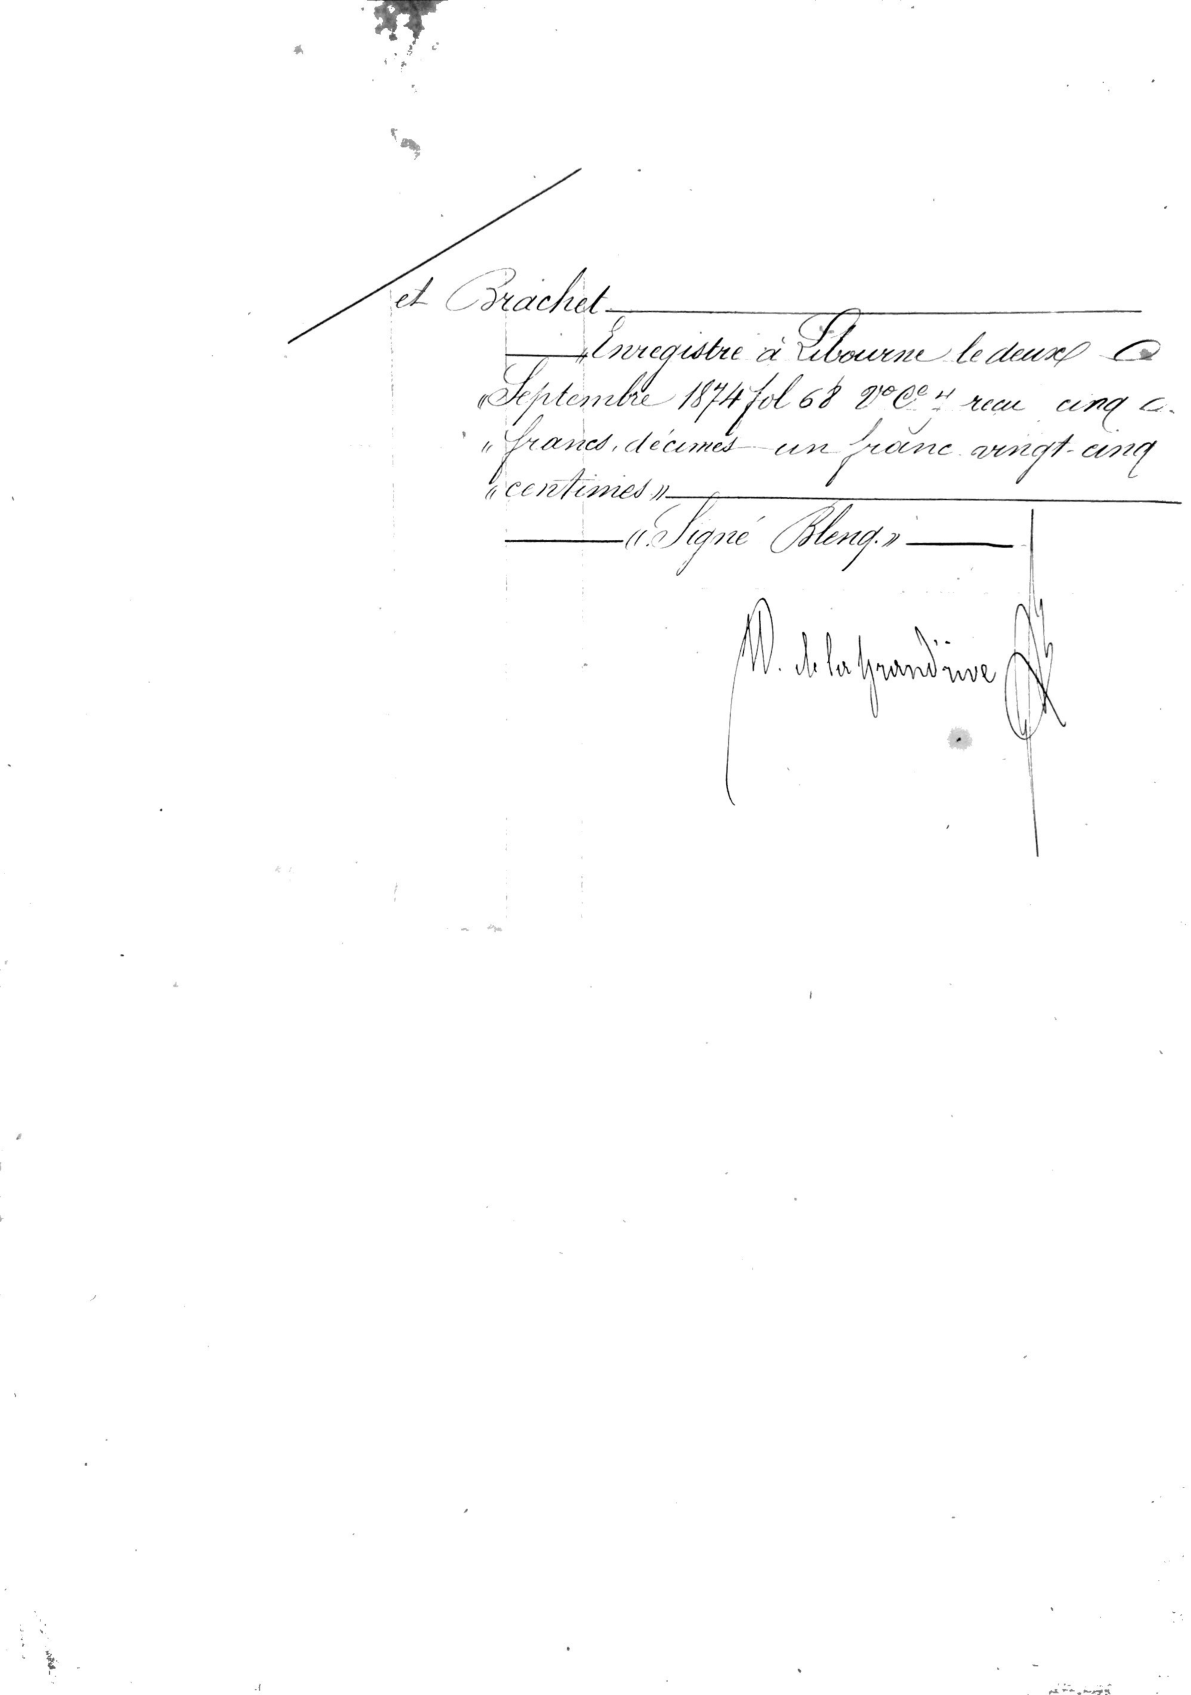 et Brachet
"Enregistré à Libourne le deux
"Septembre 1874 fol 68 Vo Ce 4 reçu cinq
"francs, décimes un franc vingt-cinq
"centimes"
"Signé Bleng."
W. de la Grand'rive